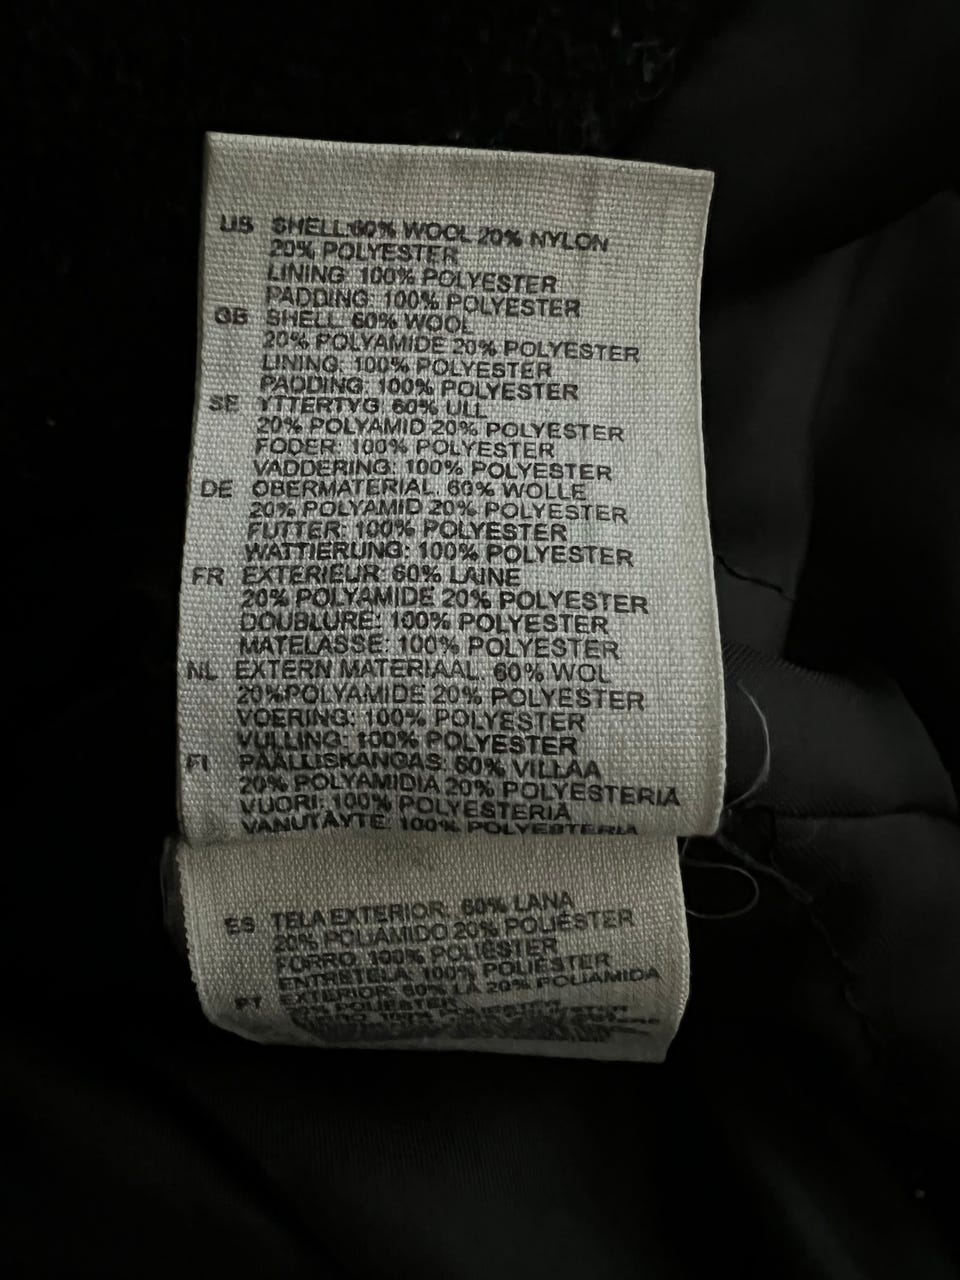 US SHELL:60% WOOL 20% NYLON
20% POLYESTER
LINING: 100% POLYESTER
PADDING: 100% POLYESTER
GB SHELL: 60% WOOL
20% POLYAMIDE 20% POLYESTER
LINING: 100% POLYESTER
PADDING: 100% POLYESTER
SE YTTERTYG: 60% ULL
20% POLYAMID 20% POLYESTER
FODER: 100% POLYESTER
VADDERING: 100% POLYESTER
DE OBERMATERIAL: 60% WOLLE
20% POLYAMID 20% POLYESTER
FUTTER: 100% POLYESTER
WATTIERUNG: 100% POLYESTER
FR EXTERIEUR: 60% LAINE
20% POLYAMIDE 20% POLYESTER
DOUBLURE: 100% POLYESTER
MATELASSE: 100% POLYESTER
NL EXTERN MATERIAAL: 60% WOL
20%POLYAMIDE 20% POLYESTER
VOERING: 100% POLYESTER
VULLING: 100% POLYESTER
FI PÄÄLLISKANGAS: 60% VILLAA
20% POLYAMIDIA 20% POLYESTERIA
VUORI: 100% POLYESTERIA
VANUTÄYTE: 100% POLYESTERIA
ES TELA EXTERIOR: 60% LANA
20% POLIAMIDO 20% POLIÉSTER
FORRO: 100% POLIÉSTER
ENTRETELA: 100% POLIÉSTER
PT EXTERIOR: 60% LÃ 20% POLIAMIDA
20% POLIESTER
100%